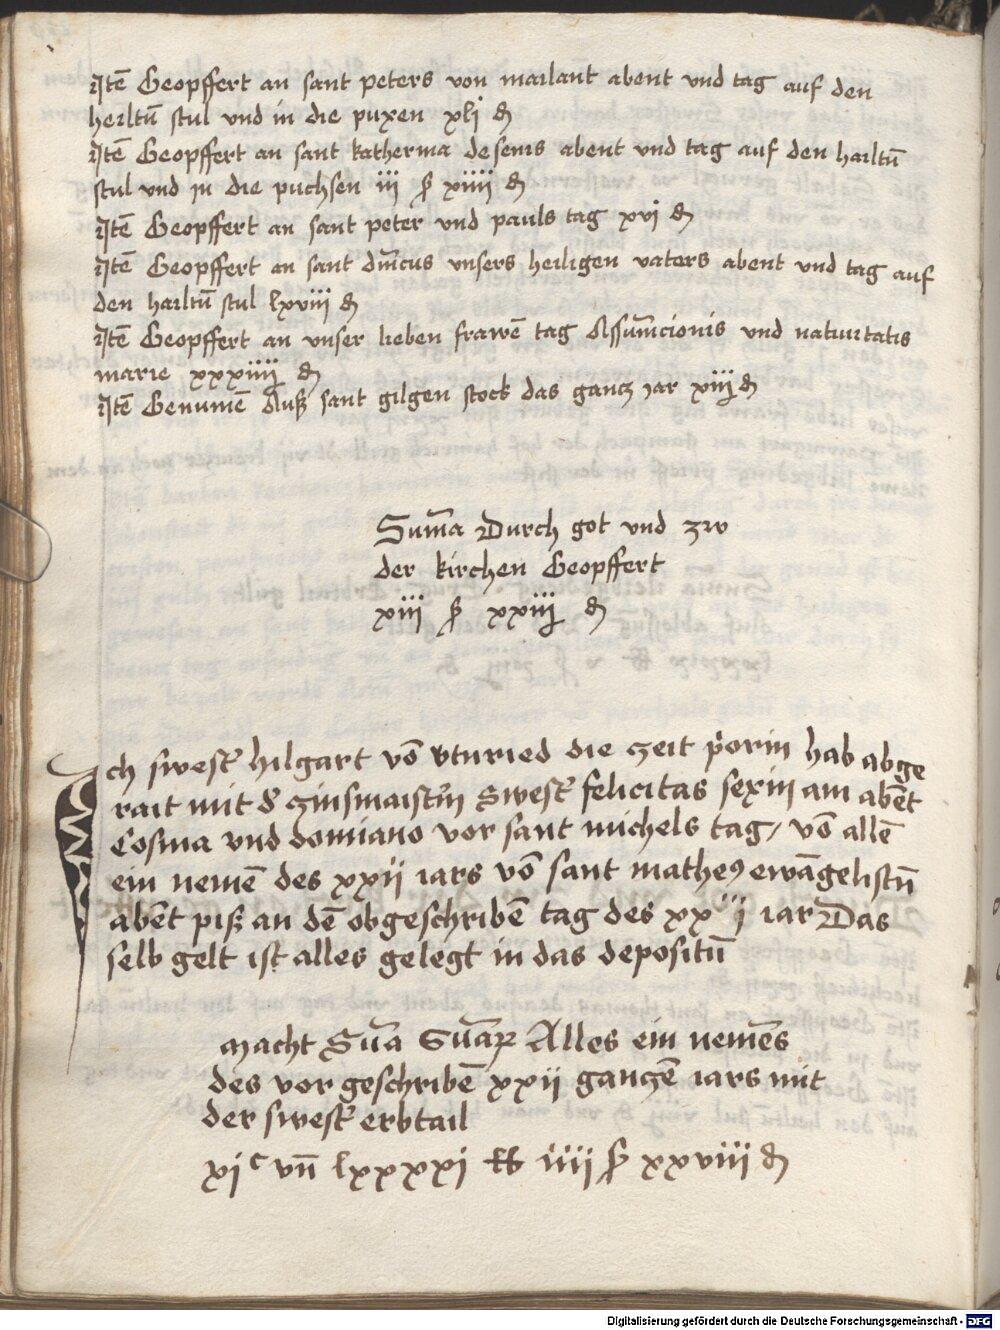 Jtē Geopffert an sant peters von mailant abent vnd tag auf den
heiltū stul vnd in die puxen xlj ₰
Jtē Geopffert an sant katherina de senis abent vnd tag auf den hailtū
stul vnd jn die puchsen iii ß xiiii ₰
Jtē Geopffert an sant peter vnd pauls tag xvj ₰
Jtē Geopffert an sant dm̄icus vnsers heiligen vaters abent vnd tag auf
den hailtū stul lxviii ₰
Jtē Geopffert an vnser lieben frawē tag Assum̄cionis vnd natiuitatis
marie xxxiiii ₰
Jtē Genumē Auß sant gilgen stock das gancz jar xiiij ₰
Sum̄a Durch got vnd zw
der kirchen Geopffert
xiii ß xxiij ₰
Jch swest' hilgart vō vtnried die czeit p'orin hab abge
rait mit d' czinsmaist'in Swest' felicitas sexin am abēt
Cosma vnd domiano vor sant michels tag / vō allē
ein nemē des xxii iars vō sant matheꝰ ewāgelistn̄
abēt piß an dē obgeschribē tag des xxiij iar Das
selb gelt ist alles gelegt in das depositū
Macht Sum̄a Sum̄aꝝ Alles ein nemēs
des vor geschribē xxii ganczē iars mit
der swest' erbtail
xjᶜ vn̄ lxxxxj ℔ iiii ß xxviiii ₰
Digitalisierung gefördert durch die Deutsche Forschungsgemeinschaft - DFG